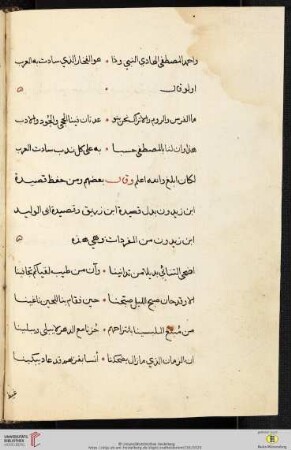 واحمد المصطفى الهادي النبي وذا • هو الفخار الذي سادت به العرب
او لو قال
ما الفرس والروم والاتراك نحن بنو • عدنان فينا التقى والجود والادب
هذا وان لنا بالمصطفى حسبا • به على كل ندب سادت العرب
لكان ابلغ والله اعلم وقال بعضهم ومن حفظ قصيدة
ابن زيدون بدل قصيدة ابن زريق وقصيدة ابي الوليد
ابن زيدون من المفردات وهي هذه
اضحى التنائي بديلا من تدانينا • وآن من طيب لقياكم تجافينا
الا وقد حان صبح الليل صبحنا • حين فقام بنا للحين ناعينا
من مبلغ الملبسينا بانتزاحهم • حزنا مع الدهر لا يبلى ويبلينا
ان الزمان الذي ما زال يضحكنا • انسا بقربهم قد عاد يبكينا
UNIVERSITÄTS-
BIBLIOTHEK
HEIDELBERG
© Universitätsbibliothek Heidelberg
gefördert durch
Baden-Württemberg